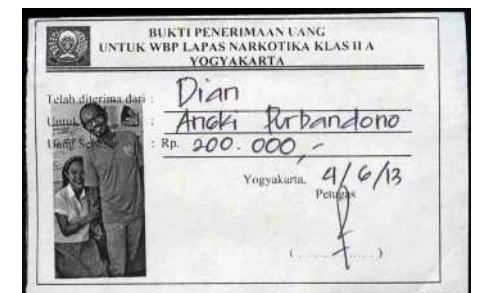 BUKTI PENERIMAAN UANG
UNTUK WBP LAPAS NARKOTIKA KLAS II A
YOGYAKARTA
Telah diterima dari : Dian
Untuk : Angki Purbandono
Uang : Rp. 200.000,-
Yogyakarta, 4/6/13
Petugas
(..............)